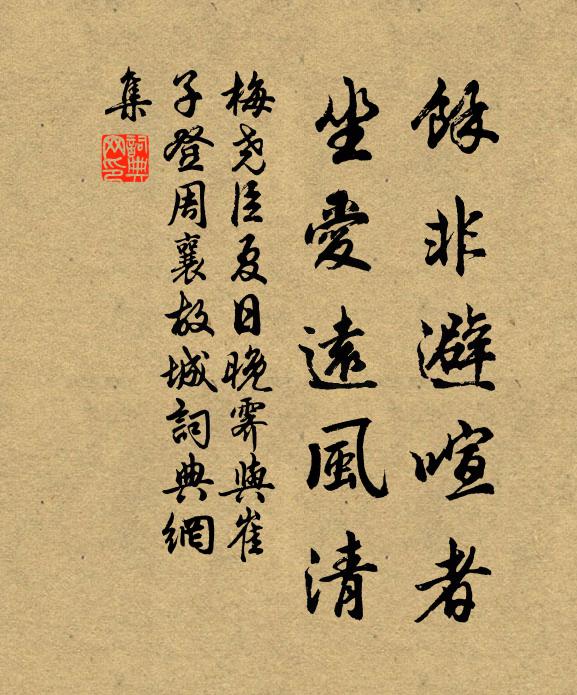 餘非避喧者
坐愛遠風清
梅堯臣夏日晚霽與崔
子登周襄故城詞典網
集
詞典网印